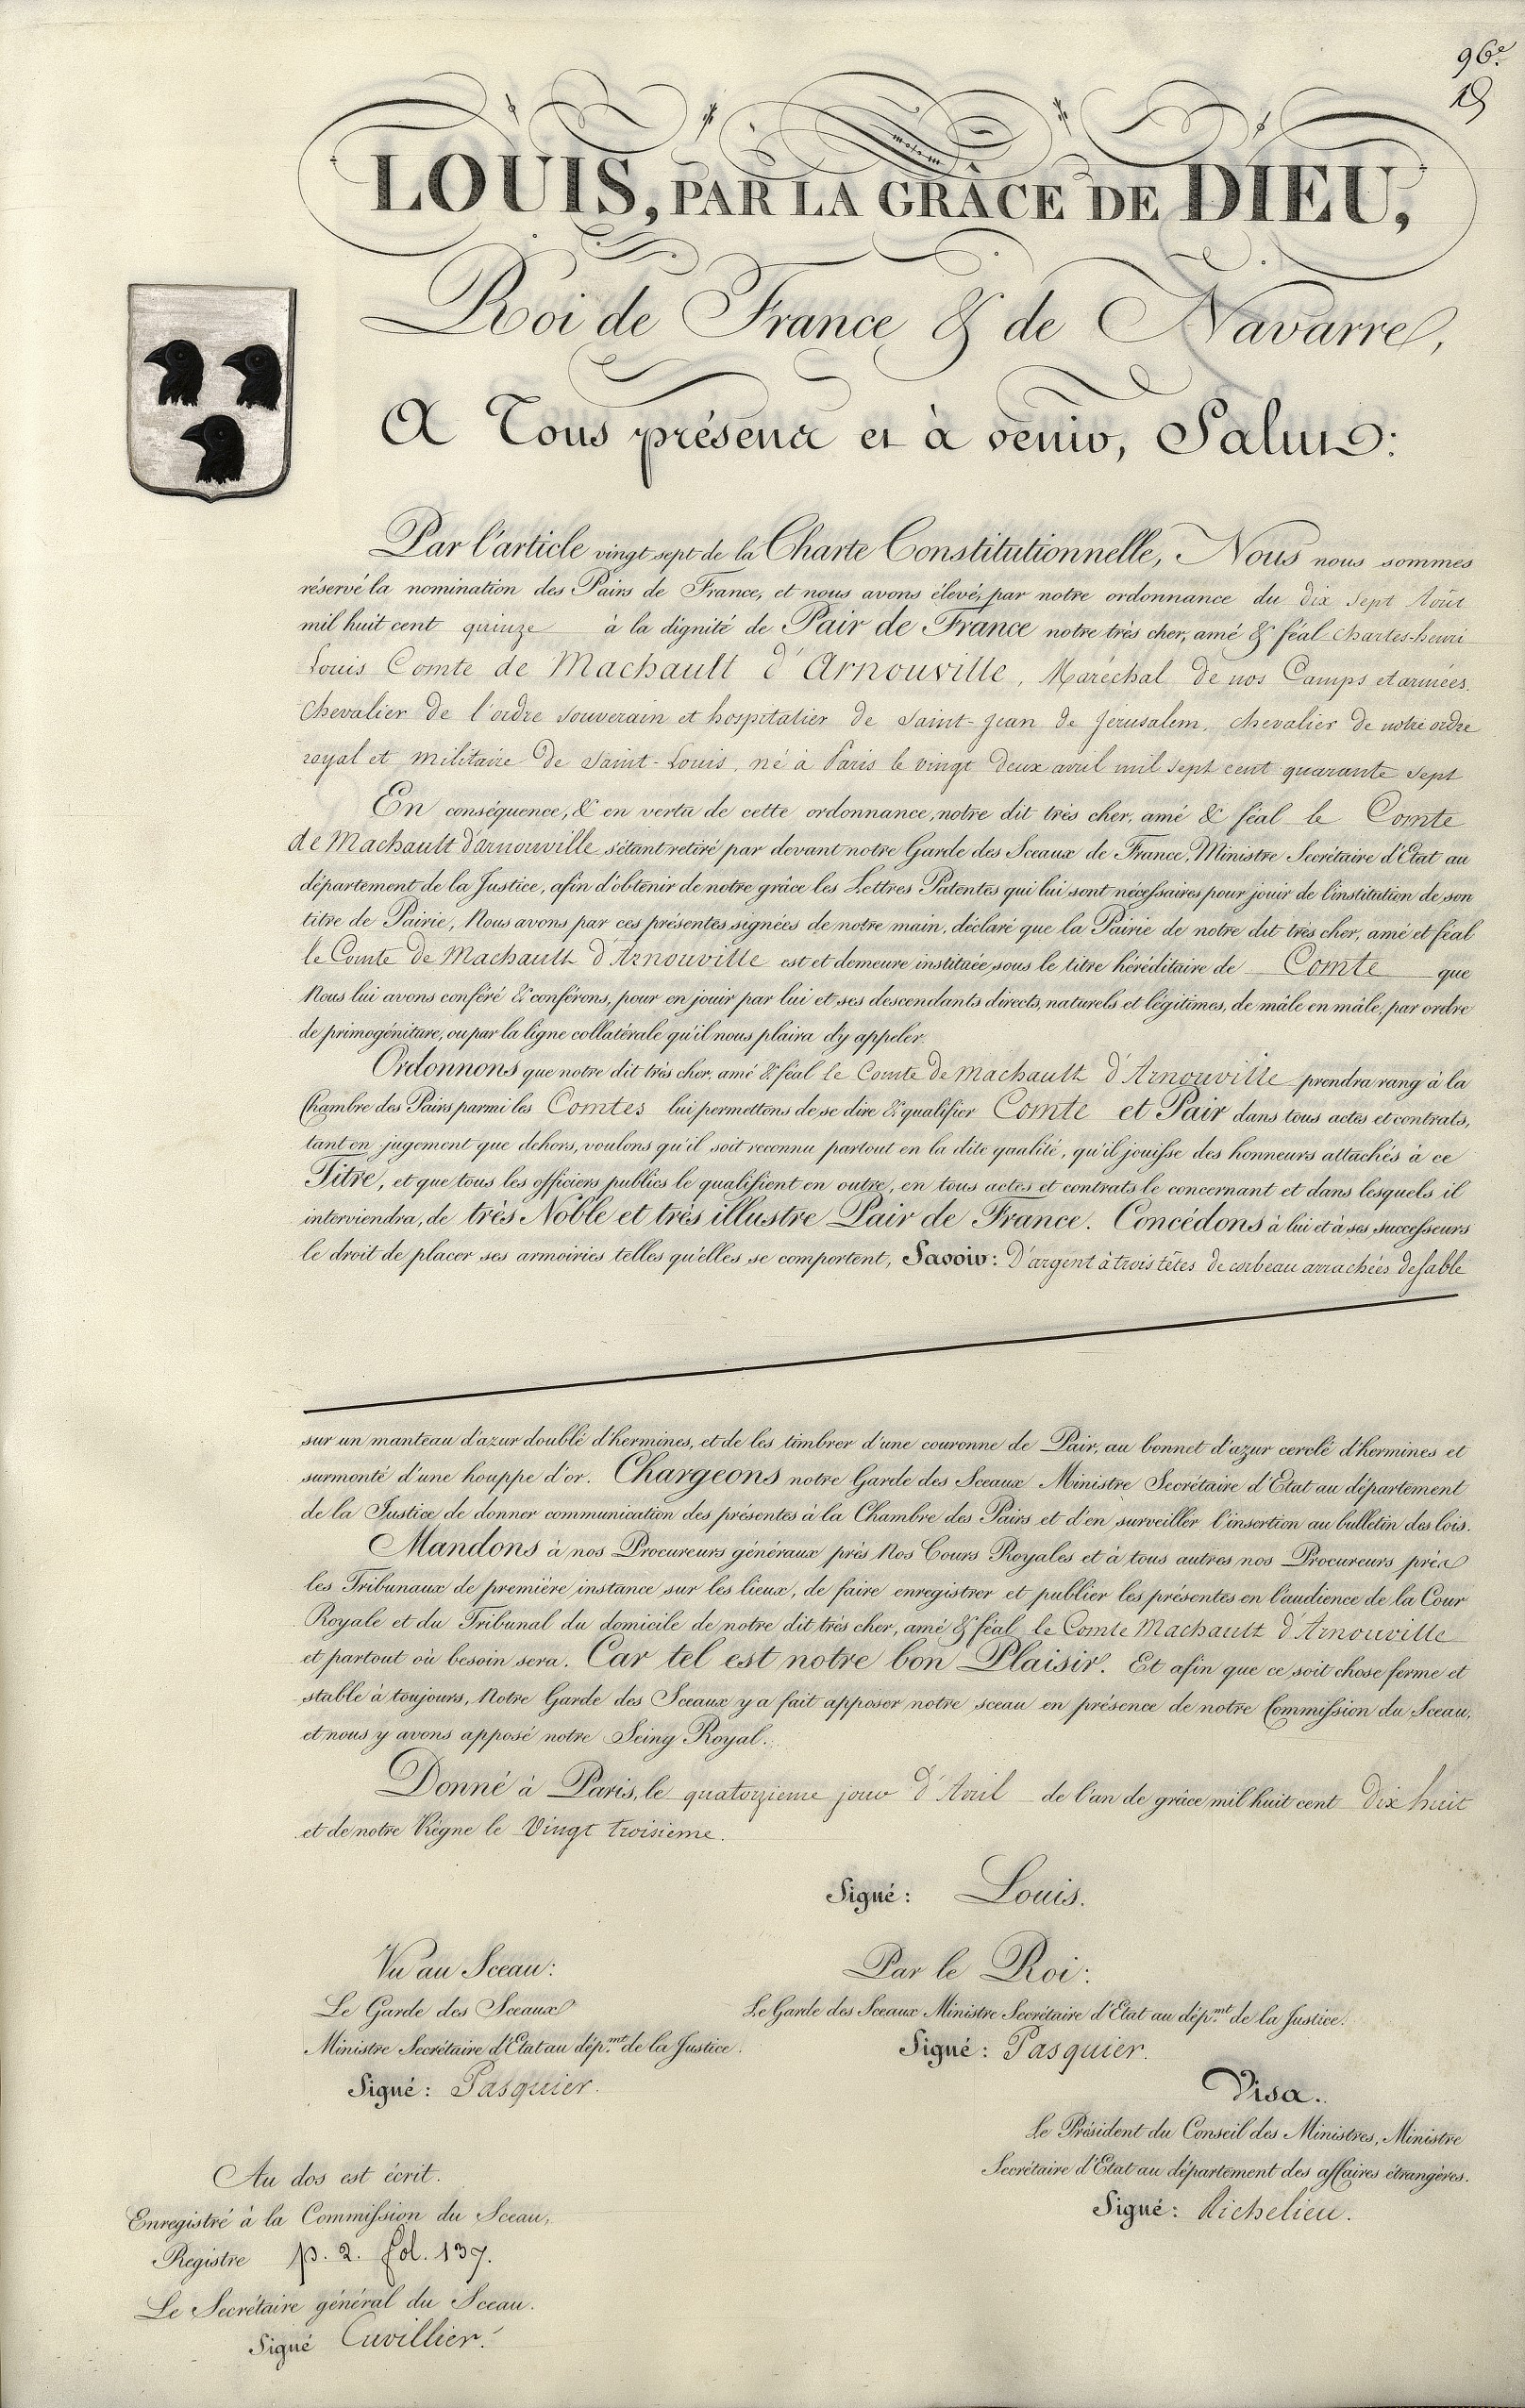 96e
LOUIS, PAR LA GRÂCE DE DIEU,
Roi de France & de Navarre,
A Tous présens et à venir, Salut:
Par l'article vingt sept de la Charte Constitutionnelle, Nous nous sommes
réservé la nomination des Pairs de France, et nous avons élevé, par notre ordonnance du dix sept Août
mil huit cent quinze à la dignité de Pair de France notre très cher, amé & féal Charles-henri
Louis Comte de Machault d'Arnouville, Maréchal de nos Camps et armées.
Chevalier de l'ordre souverain et hospitalier de Saint-Jean de Jérusalem, chevalier de notre ordre
royal et militaire de Saint-Louis, né à Paris le vingt deux avril mil sept cent quarante sept
En conséquence, & en vertu de cette ordonnance, notre dit très cher, amé & féal le Comte
de Machault d'arnouville s'étant retiré par devant notre Garde des Sceaux de France, Ministre Secrétaire d'Etat au
département de la Justice, afin d'obtenir de notre grâce les Lettres Patentes qui lui sont nécessaires pour jouir de l'institution de son
titre de Pairie, Nous avons par ces présentes signées de notre main, déclaré que la Pairie de notre dit très cher, amé et féal
le Comte de Machault d'Arnouville est et demeure instituée sous le titre héréditaire de Comte que
Nous lui avons conféré & conférons, pour en jouir par lui et ses descendants directs, naturels et légitimes, de mâle en mâle, par ordre
de primogéniture, ou par la ligne collatérale qu'il nous plaira d'y appeler.
Ordonnons que notre dit très cher, amé & féal le Comte de Machault d'Arnouville prendra rang à la
Chambre des Pairs parmi les Comtes lui permettons de se dire & qualifier Comte et Pair dans tous actes et contrats,
tant en jugement que dehors, voulons qu'il soit reconnu partout en la dite qualité, qu'il jouisse des honneurs attachés à ce
Titre, et que tous les officiers publics le qualifient en outre, en tous actes et contrats le concernant et dans lesquels il
interviendra, de très Noble et très illustre Pair de France. Concédons à lui et à ses successeurs
le droit de placer ses armoiries telles qu'elles se comportent, Savoir: D'argent à trois têtes de corbeau arrachées de sable
sur un manteau d'azur doublé d'hermines, et de les timbrer d'une couronne de Pair, au bonnet d'azur cerclé d'hermines et
surmonté d'une houppe d'or. Chargeons notre Garde des Sceaux Ministre Secrétaire d'Etat au département
de la Justice de donner communication des présentes à la Chambre des Pairs et d'en surveiller l'insertion au bulletin des lois.
Mandons à nos Procureurs généraux près Nos Cours Royales et à tous autres nos Procureurs près
les Tribunaux de première instance sur les lieux, de faire enregistrer et publier les présentes en l'audience de la Cour
Royale et du Tribunal du domicile de notre dit très cher, amé & féal le Comte Machault d'Arnouville
et partout où besoin sera. Car tel est notre bon Plaisir. Et afin que ce soit chose ferme et
stable à toujours, Notre Garde des Sceaux y a fait apposer notre sceau en présence de notre Commission du Sceau,
et nous y avons apposé notre Seing Royal.
Donné à Paris, le quatorzieme jour d'Avril de l'an de grâce mil huit cent Dix huit
et de notre Règne le Vingt troisieme.
Signé: Louis.
Vu au Sceau:
Le Garde des Sceaux
Ministre Secrétaire d'Etat au dép.mt de la Justice.
Signé: Pasquier.
Par le Roi:
Le Garde des Sceaux Ministre Secrétaire d'Etat au dép.mt de la Justice.
Signé: Pasquier.
Visa.
Le Président du Conseil des Ministres, Ministre
Secrétaire d'Etat au département des affaires étrangères.
Signé: Richelieu.
Au dos est écrit.
Enregistré à la Commission du Sceau,
Registre p. 2. fol. 137.
Le Secrétaire général du Sceau.
Signé Cuvillier.